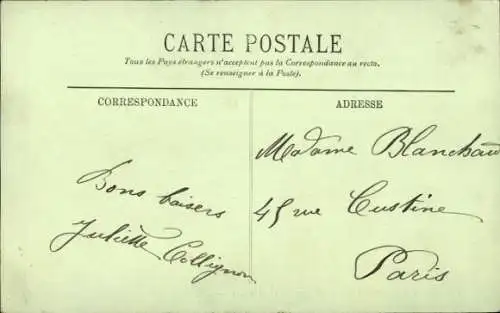 CARTE POSTALE
Tous les Pays étrangers n'acceptent pas la Correspondance au recto.
(Se renseigner à la Poste).
CORRESPONDANCE
ADRESSE
Bons baisers
Juliette Collignon
Madame Blanchau
45 rue Custine
Paris